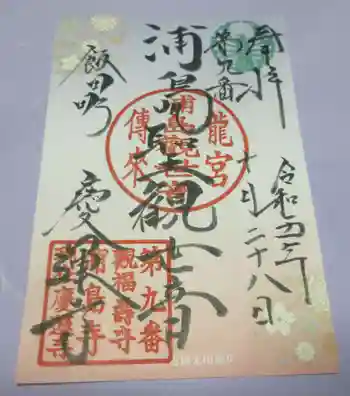 奉拝
第九番
令和四年
十一月二十八日
浦島聖観世音
飯田町
慶運寺
龍宮
傳来
浦島
観世音
第九番
観福壽寺
浦島寺
慶運寺